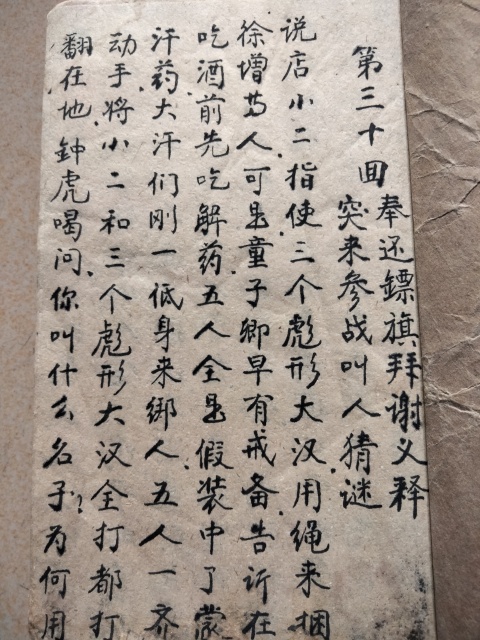 第三十回
奉还鏢旗拜谢义释
突来参战叫人猜谜
说店小二指使三个彪形大汉用绳来捆
徐增等人可是童子卿早有戒备告诉在
吃酒前先吃解药五人全是假装中了蒙
汗药大汗们刚一低身来绑人五人一齐
动手将小二和三个彪形大汉全打都打
翻在地钟虎喝问你叫什么名子？为何用